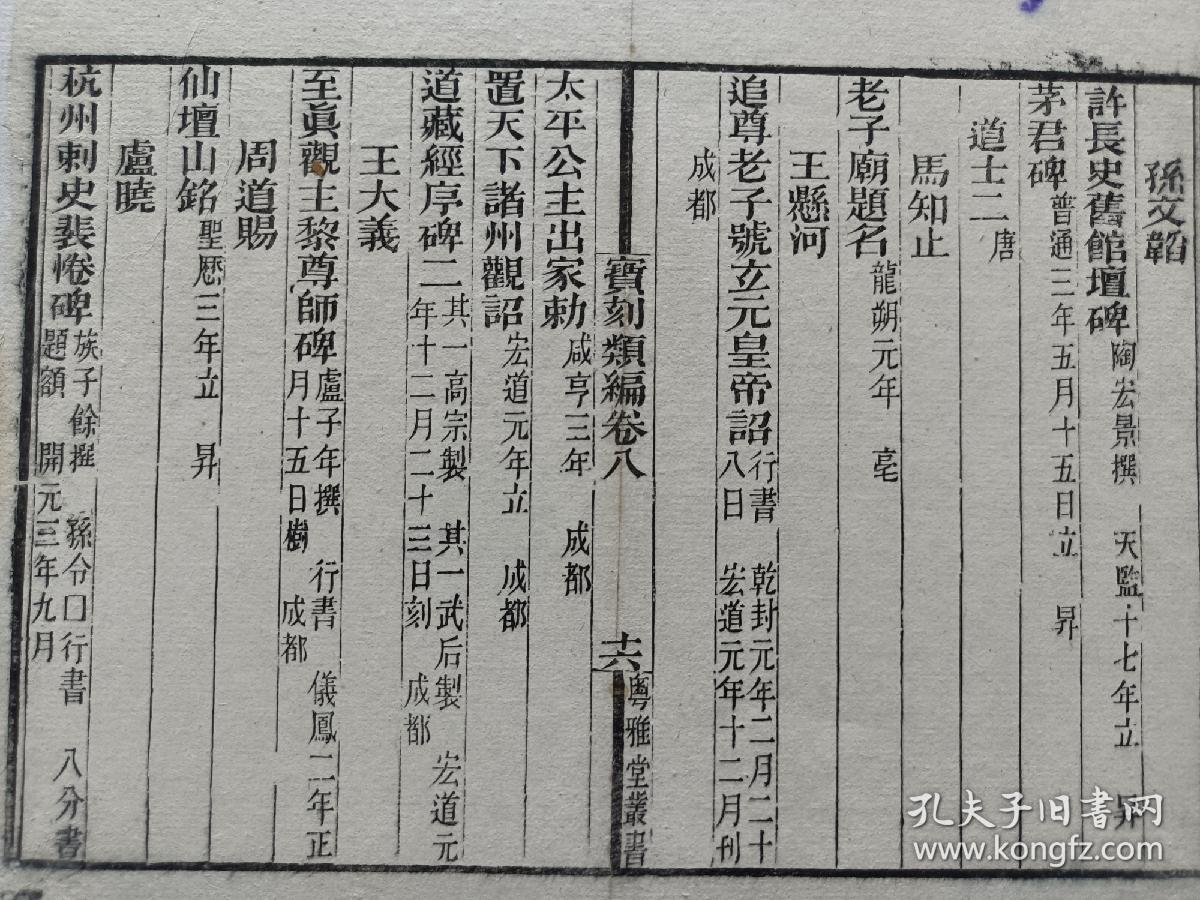 孫文韜
許長史舊館壇碑陶宏景撰　天監十七年立　昇
茅君碑普通三年五月十五日立　昇
道士二唐
馬知止
老子廟題名龍朔元年　亳
王懸河
追尊老子號立元皇帝詔行書　乾封元年二月二十八日　宏道元年十二月刊　成都
太平公主出家勅咸亨三年　成都
置天下諸州觀詔宏道元年立　成都
道藏經序碑二其一高宗製　其一武后製　宏道元年十二月二十三日刻　成都
王大義
至眞觀主黎尊師碑盧子年撰　行書　儀鳳二年正月十五日樹　成都
周道賜
仙壇山銘聖厯三年立　昇
盧曉
杭州刺史裴惓碑族子餘撰　孫令囗行書　八分書題額　開元三年九月
寶刻類編卷八
十六
粵雅堂叢書
孔夫子旧书网
www.kongfz.com